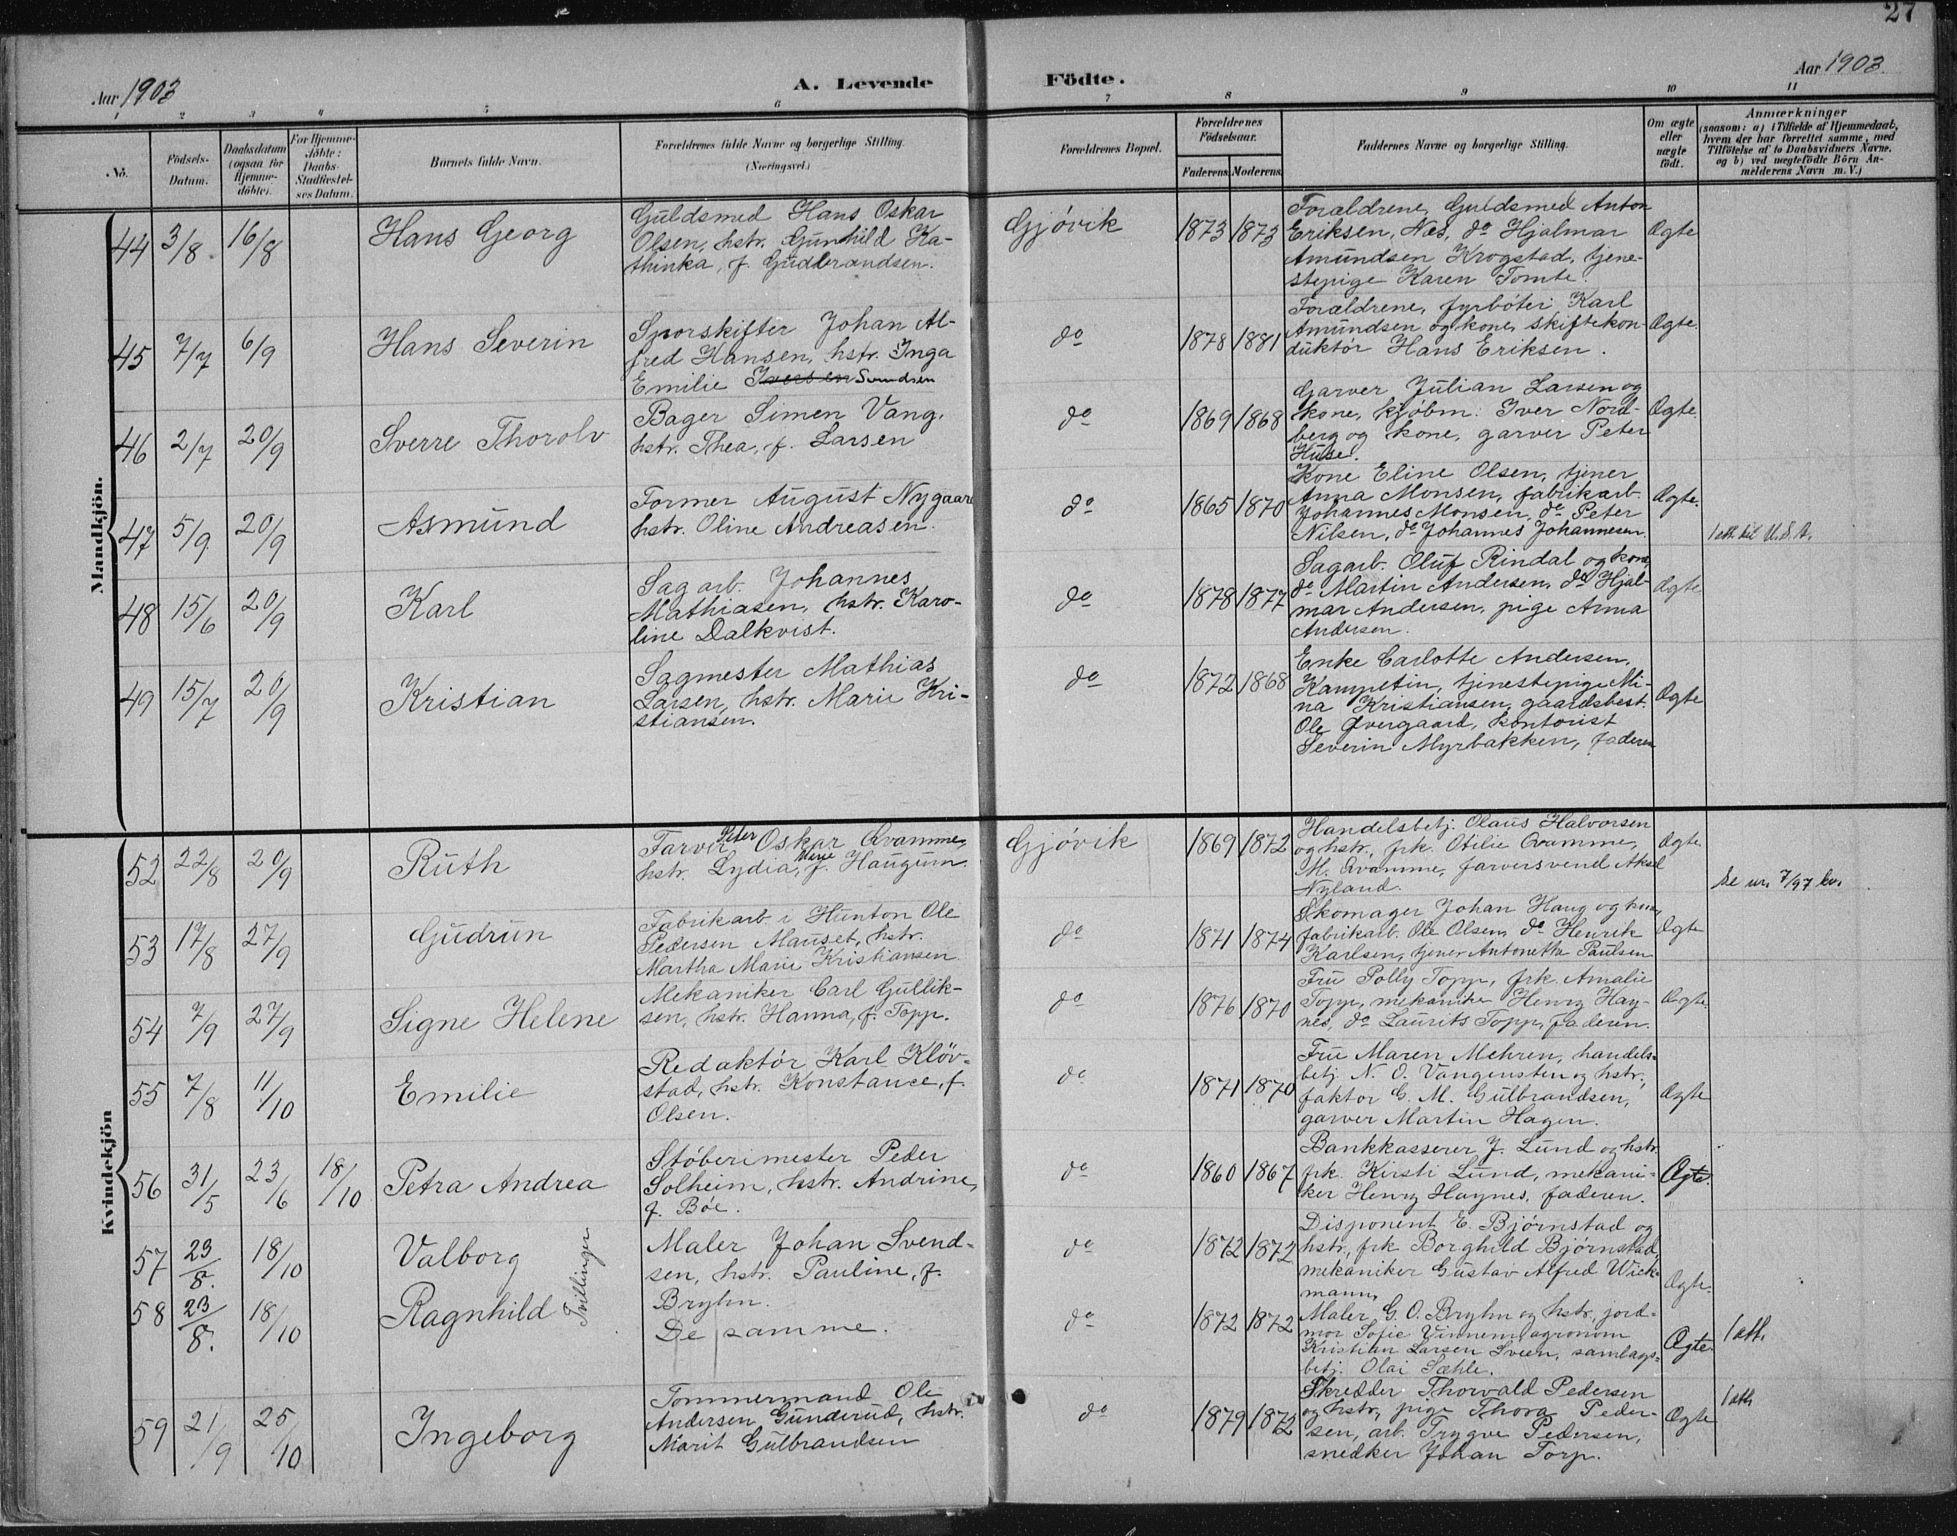 27
Aar 1903
A. Levende Födte.
Aar 1903.
1 2 3 4 5 6 7 8 9 10 11
No.
Födsels-Datum.
Daabsdatum (ogsaa for Hjemme-döbte).
For Hjemme-döbte: Daabs Stadfæstel-ses Datum.
Barnets fulde Navn.
Forældrenes fulde Navne og borgerlige Stilling.
(Næringsvei.)
Forældrenes Bopæl.
Forældrenes Födselsaar.
Faderens. Moderens.
Faddernes Navne og borgerlige Stilling.
Om ægte eller uægte födt.
Anmærkninger
(saasom: a) i Tilfælde af Hjemmedaab,
hvem der har forrettet samme, med
Tilföielse af to Daabsvidners Navne.
og b) ved uægtefödte Börn An-
melderens Navn m. V.)
Mandkjön.
44 3/8. 16/8 Hans Georg
Guldsmed Hans Oskar
Olsen, hstr. Gunhild Ka-
thinka, f. Gudbrandsen.
Gjövik 1873 1873
Forældrene, Guldsmed Anton
Eriksen, Næs, do Hjalmar
Amundsen Krogstad, tjene-
stepige Karen Tomte.
Ægte
45 7/7 6/9 Hans Severin
Sporskifter Johan Al-
fred Hansen, hstr. Inga
Emilie Iversen Svendsen
do 1878 1881
Forældrene, fyrböter Karl
Amundsen og kone, skiftekon-
duktör Hans Eriksen.
Ægte.
46 2/7 20/9 Sverre Thorolv
Bager Simen Vang,
hstr. Thea, f. Larsen
do 1869 1868
Garver Julian Larsen og
kone, kjöbm. Iver Nord-
berg og kone, garver Peter
Huse.
Ægte.
47 5/9. 20/9 Asmund
Former August Nygaard
hstr. Oline Andreasen.
do 1865 1870
Kone Eline Olsen, tjener
Anna Monsen, fabrikarb.
Johannes Monsen, do Peter
Nilsen, do Johannes Johannesen
Ægte.
1 att. til U.S.A.
48 15/6 20/9 Karl
Sagarb. Johannes
Mathiasen, hstr. Karo-
line Dalkvist.
do 1878 1877
Sagarb. Oluf Rindal og kone,
do Martin Andersen, do Hjal-
mar Andersen, pige Anna
Andersen.
Ægte
49 15/7 20/9 Kristian
Sagmester Mathias
Larsen, hstr. Marie Kri-
stiansen.
do 1872 1868
Enke Carlotte Andersen,
Kampetin, tjenestepige Mi-
na Kristiansen, gaardsbest.
Ole Overgaard, kontorist
Severin Myrbakken, faderen
Ægte
Kvindekjön
52 22/8 20/9 Ruth
Farver Peter Oskar Qvamme,
hstr. Lydia, f. Haugum
Gjövik 1869 1872
Handelsbetj. Olaus Halvorsen
og hstr., frk. Otilie Qvamme,
M. Qvamme, farversvend Aksel
Nyland.
Ægte
Se nr. 7/97 kv.
53 17/8 27/9 Gudrun
Fabrikarb. i Hunton Ole
Pedersen Mauset, hstr.
Martha Marie Kristiansen.
do 1871 1874
Skomager Johan Haug og kone,
fabrikarb. Ole Olsen, do Henrik
Karlsen, tjener Antonetha Paulsen
Ægte
54 7/9 27/9 Signe Helene
Mekaniker Carl Gullik-
sen, hstr. Hanna, f. Topp.
do 1876 1870
Fru Polly Topp, frk. Amalie
Topp, mekaniker Henry Hay-
nes, do Laurits Topp, faderen.
Ægte
55 7/8 11/10 Emilie
Redaktör Karl Klöv-
stad, hstr. Konstance, f.
Olsen.
do 1871 1870
Fru Maren Mehren, handels-
betj. N. O. Vangensten og hstr.,
faktor G. M. Gulbrandsen,
garver Martin Hagen.
Ægte
56 31/5 23/6 18/10 Petra Andrea
Stöberimester Peder
Solheim, hstr. Andrine,
f. Böe.
do 1860 1867
Bankkasserer J. Lund og hstr.
frk. Kirsti Lund, mekani-
ker Henry Haynes, faderen.
Ægte.
57 23/8. 18/10 Valborg
Tvillinger
Maler Johan Svend-
sen, hstr. Pauline, f.
Bryhn.
do 1872 1872
Disponent E. Björnstad og
hstr., frk Borghild Björnstad,
mekaniker Gustav Alfred Wick-
mann,
Ægte.
58 23/8. 18/10 Ragnhild
De samme.
do 1872 1872
Maler G. O. Bryhn og hstr., jord-
mor Sofie Vinnem, agronom
Kristian Larsen Sveen, samlags-
betj. Olai Sæhle.
Ægte.
1 att.
59 21/9 25/10 Ingeborg
Tommermand Ole
Andersen Gunderud, hstr.
Marit Gulbrandsen
do 1879 1872
Skredder Thorvald Pedersen
og hstr., pige Thora Peder-
sen, arb. Trygve Pedersen,
snedker Johan Torp.
Ægte
1 att.